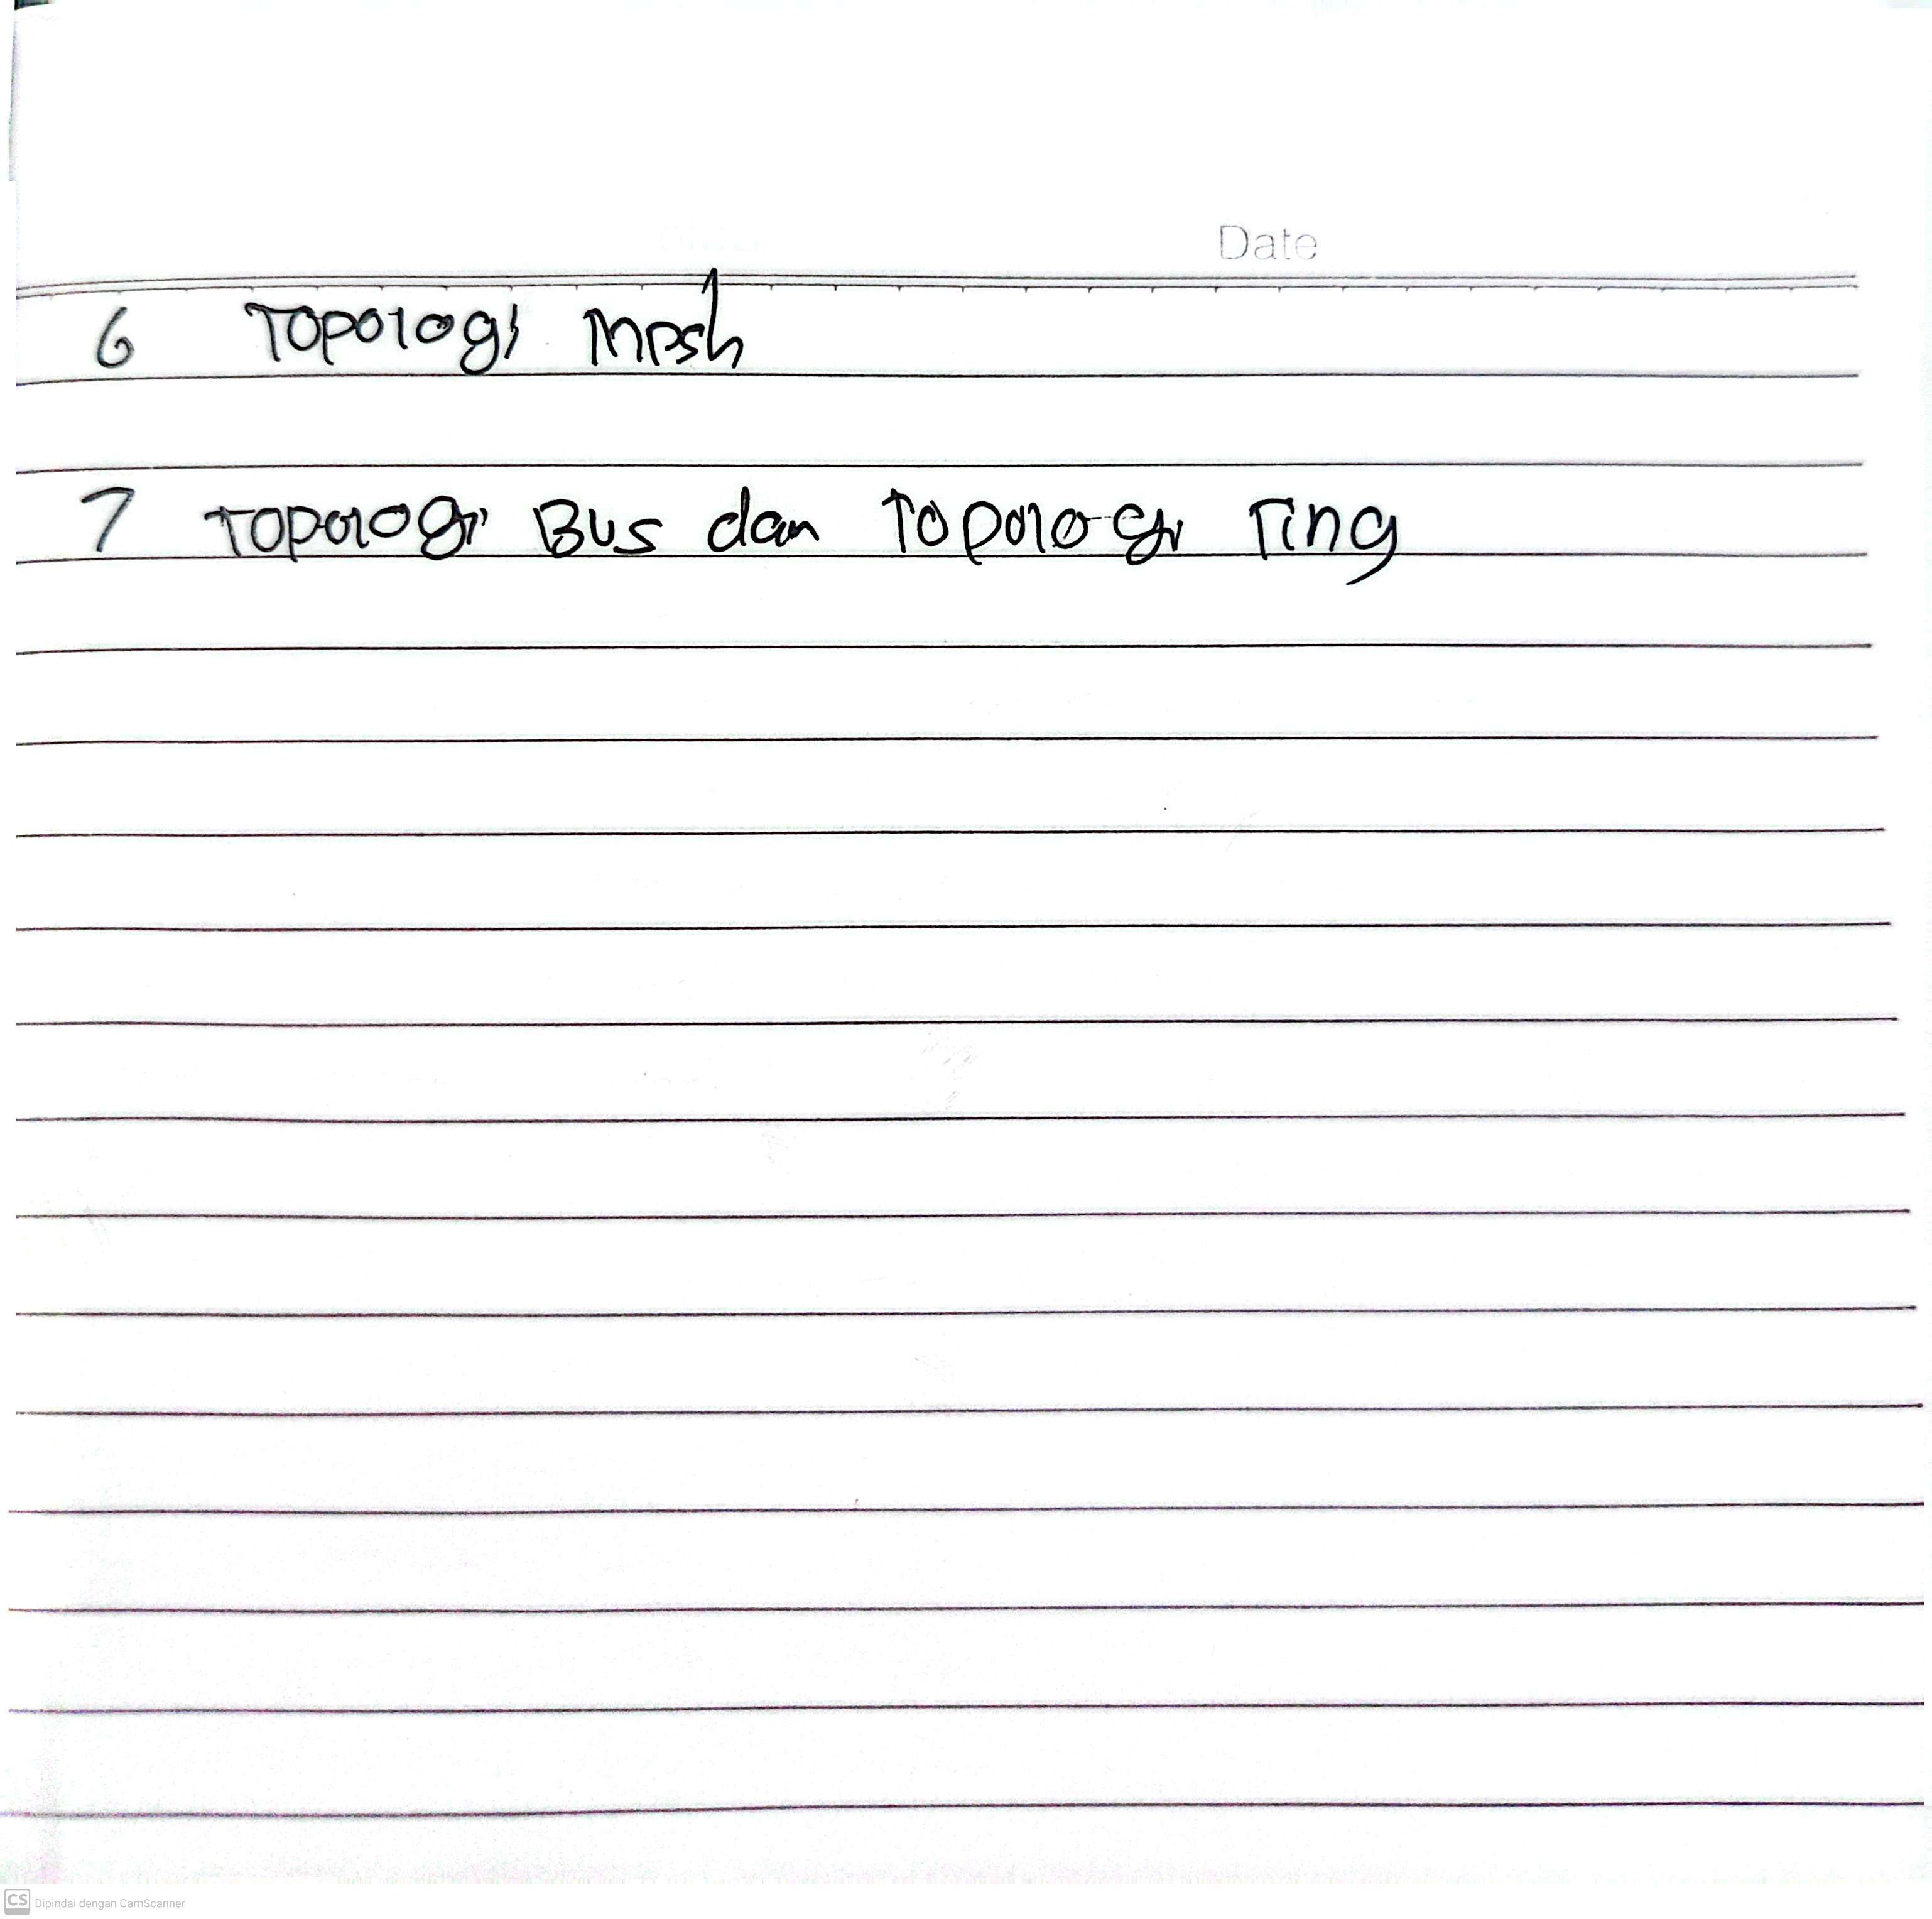 Date
6 Topologi Mesh
7 Topologi Bus dan Topologi ring
CS Dipindai dengan CamScanner